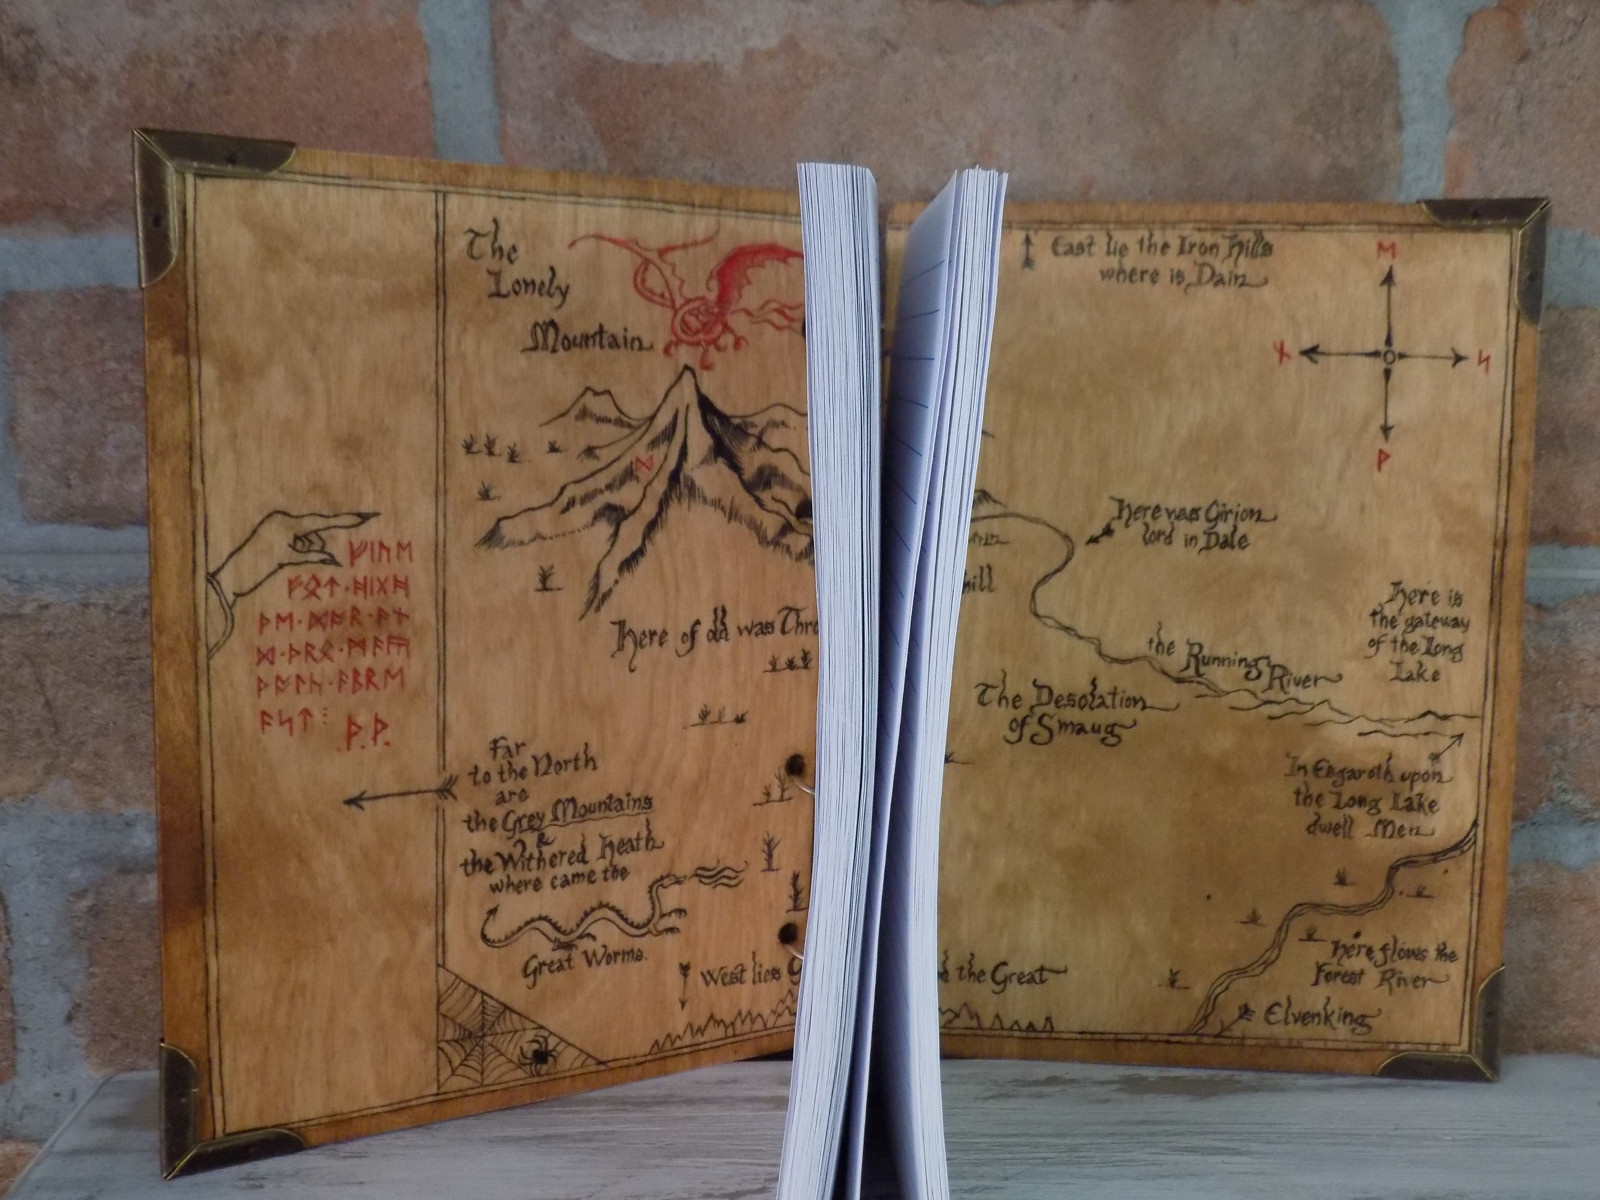 The
Lonely
Mountain
ᛞ
ᚠᛁᚢᛖ
ᚠᛟᛏ·ᚻᛁᚷᚻ
ᚦᛖ·ᛞᚩᚱ·ᚪᚾ
ᛞ·ᚦᚱᛟ·ᛗᚪᚣ
ᚪᛒᚱᛖ
ᚪᛋᛏ᛬ ᚦ.ᚦ.
Here of old was
Far
to the North
are
the Grey Mountains
&
the Withered Heath
where came the
Great Worms.
West lies
the Great
East lie the Iron Hills
where is Dain
ᛖ
ᚾ
ᛋ
ᚹ
Here was Girion
lord in Dale
Here is
the gateway
of the Long
Lake
the Running
River
The Desolation
of Smaug
In Esgaroth upon
the Long Lake
dwell Men
Here flows the
Forest River
Elvenking